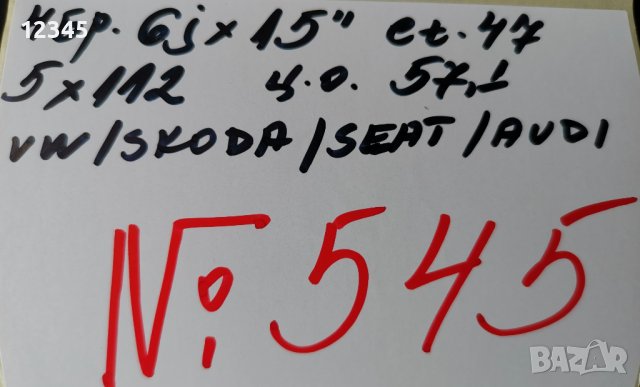 12345
кър. 6j x 15" et. 47
5 x 112 ц.о. 57,1
VW / SKODA / SEAT / AUDI
№: 545
BAZAR